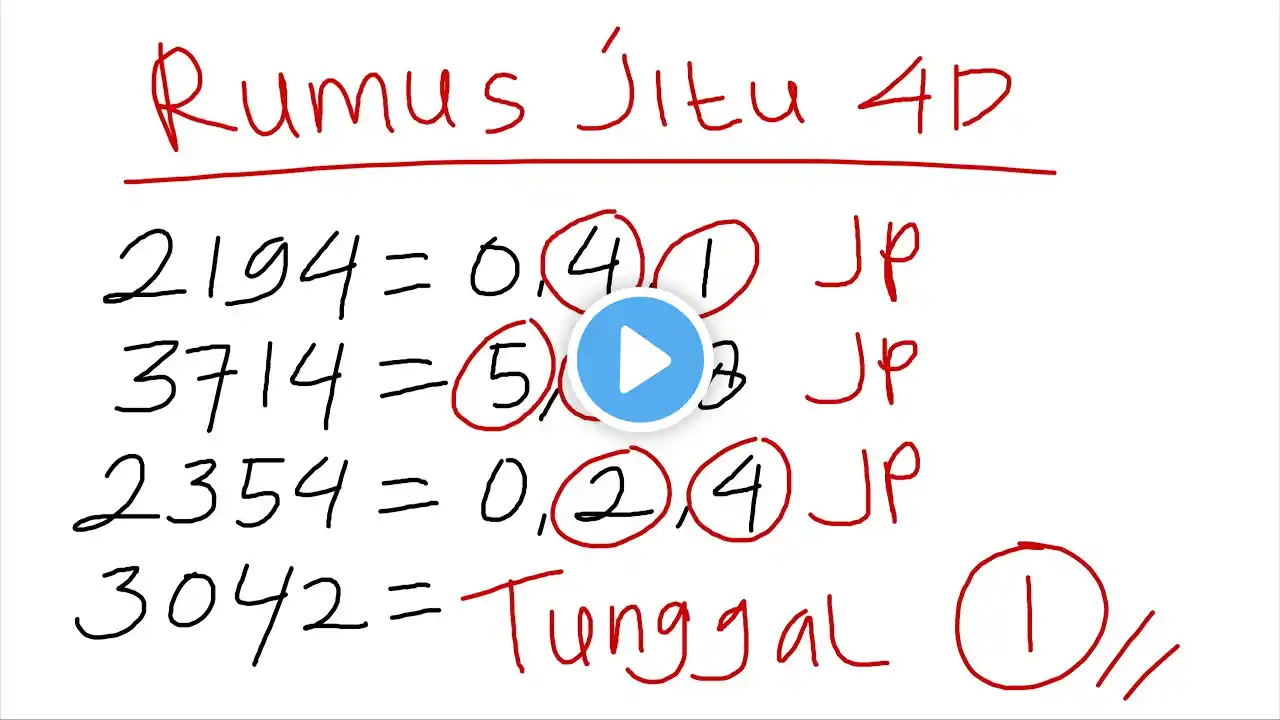 Rumus Jitu 4D
2194 = 0, 4, 1 JP
3714 = 5, 8 JP
2354 = 0, 2, 4 JP
3042 = Tunggal 1